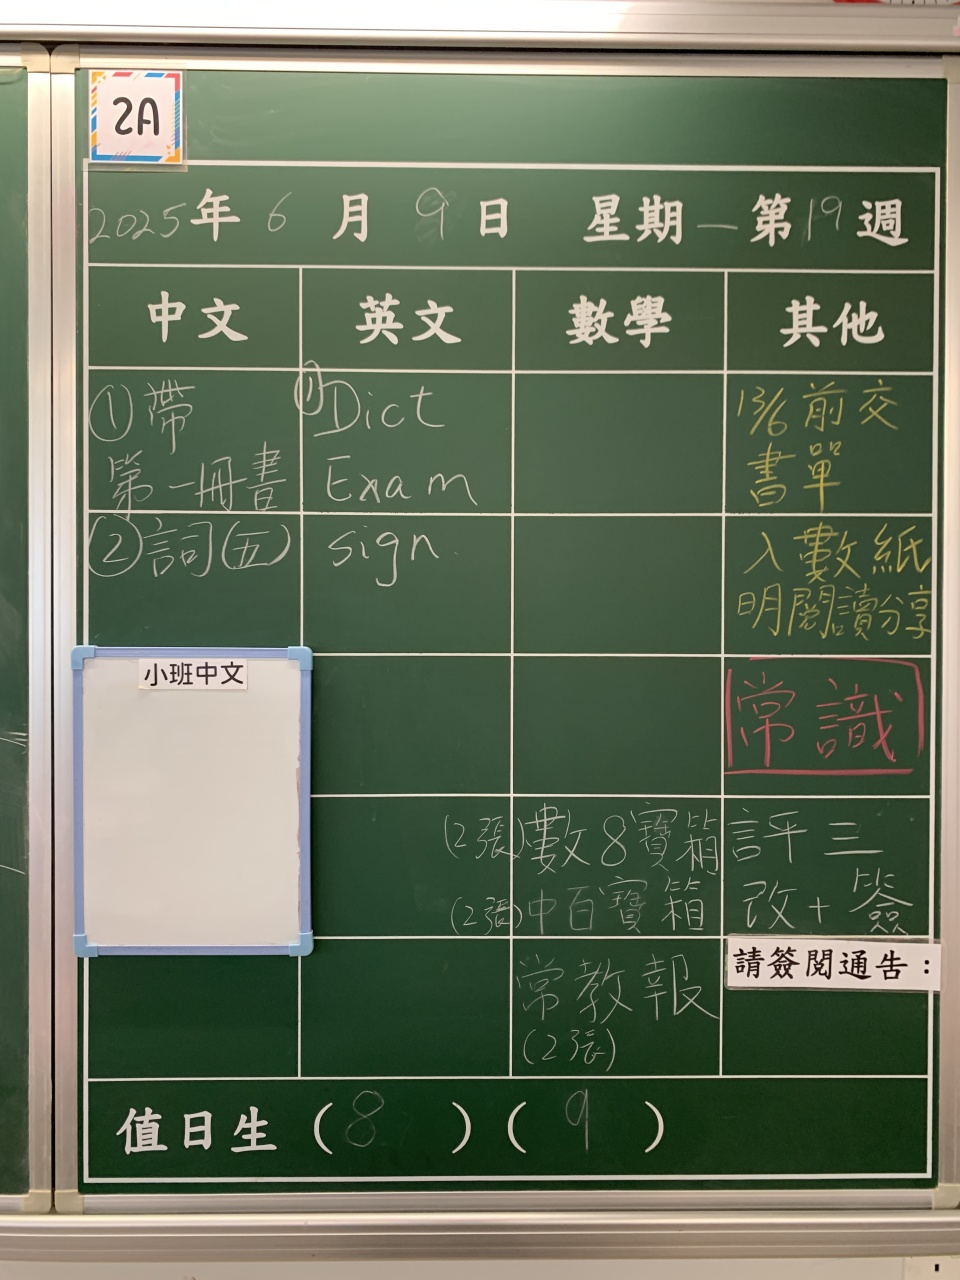 2A
2025年 6 月 9 日 星期一 第19週
中文 英文 數學 其他
①帶
第一冊書
②詞(五)
① Dict
Exam
sign
13/6前交
書單
入數紙
明閱讀分享
小班中文
常識
(2張)數8寶箱
(2張)中百寶箱
評三
改+簽
常教報
(2張)
請簽閱通告：
值日生 ( 8 ) ( 9 )